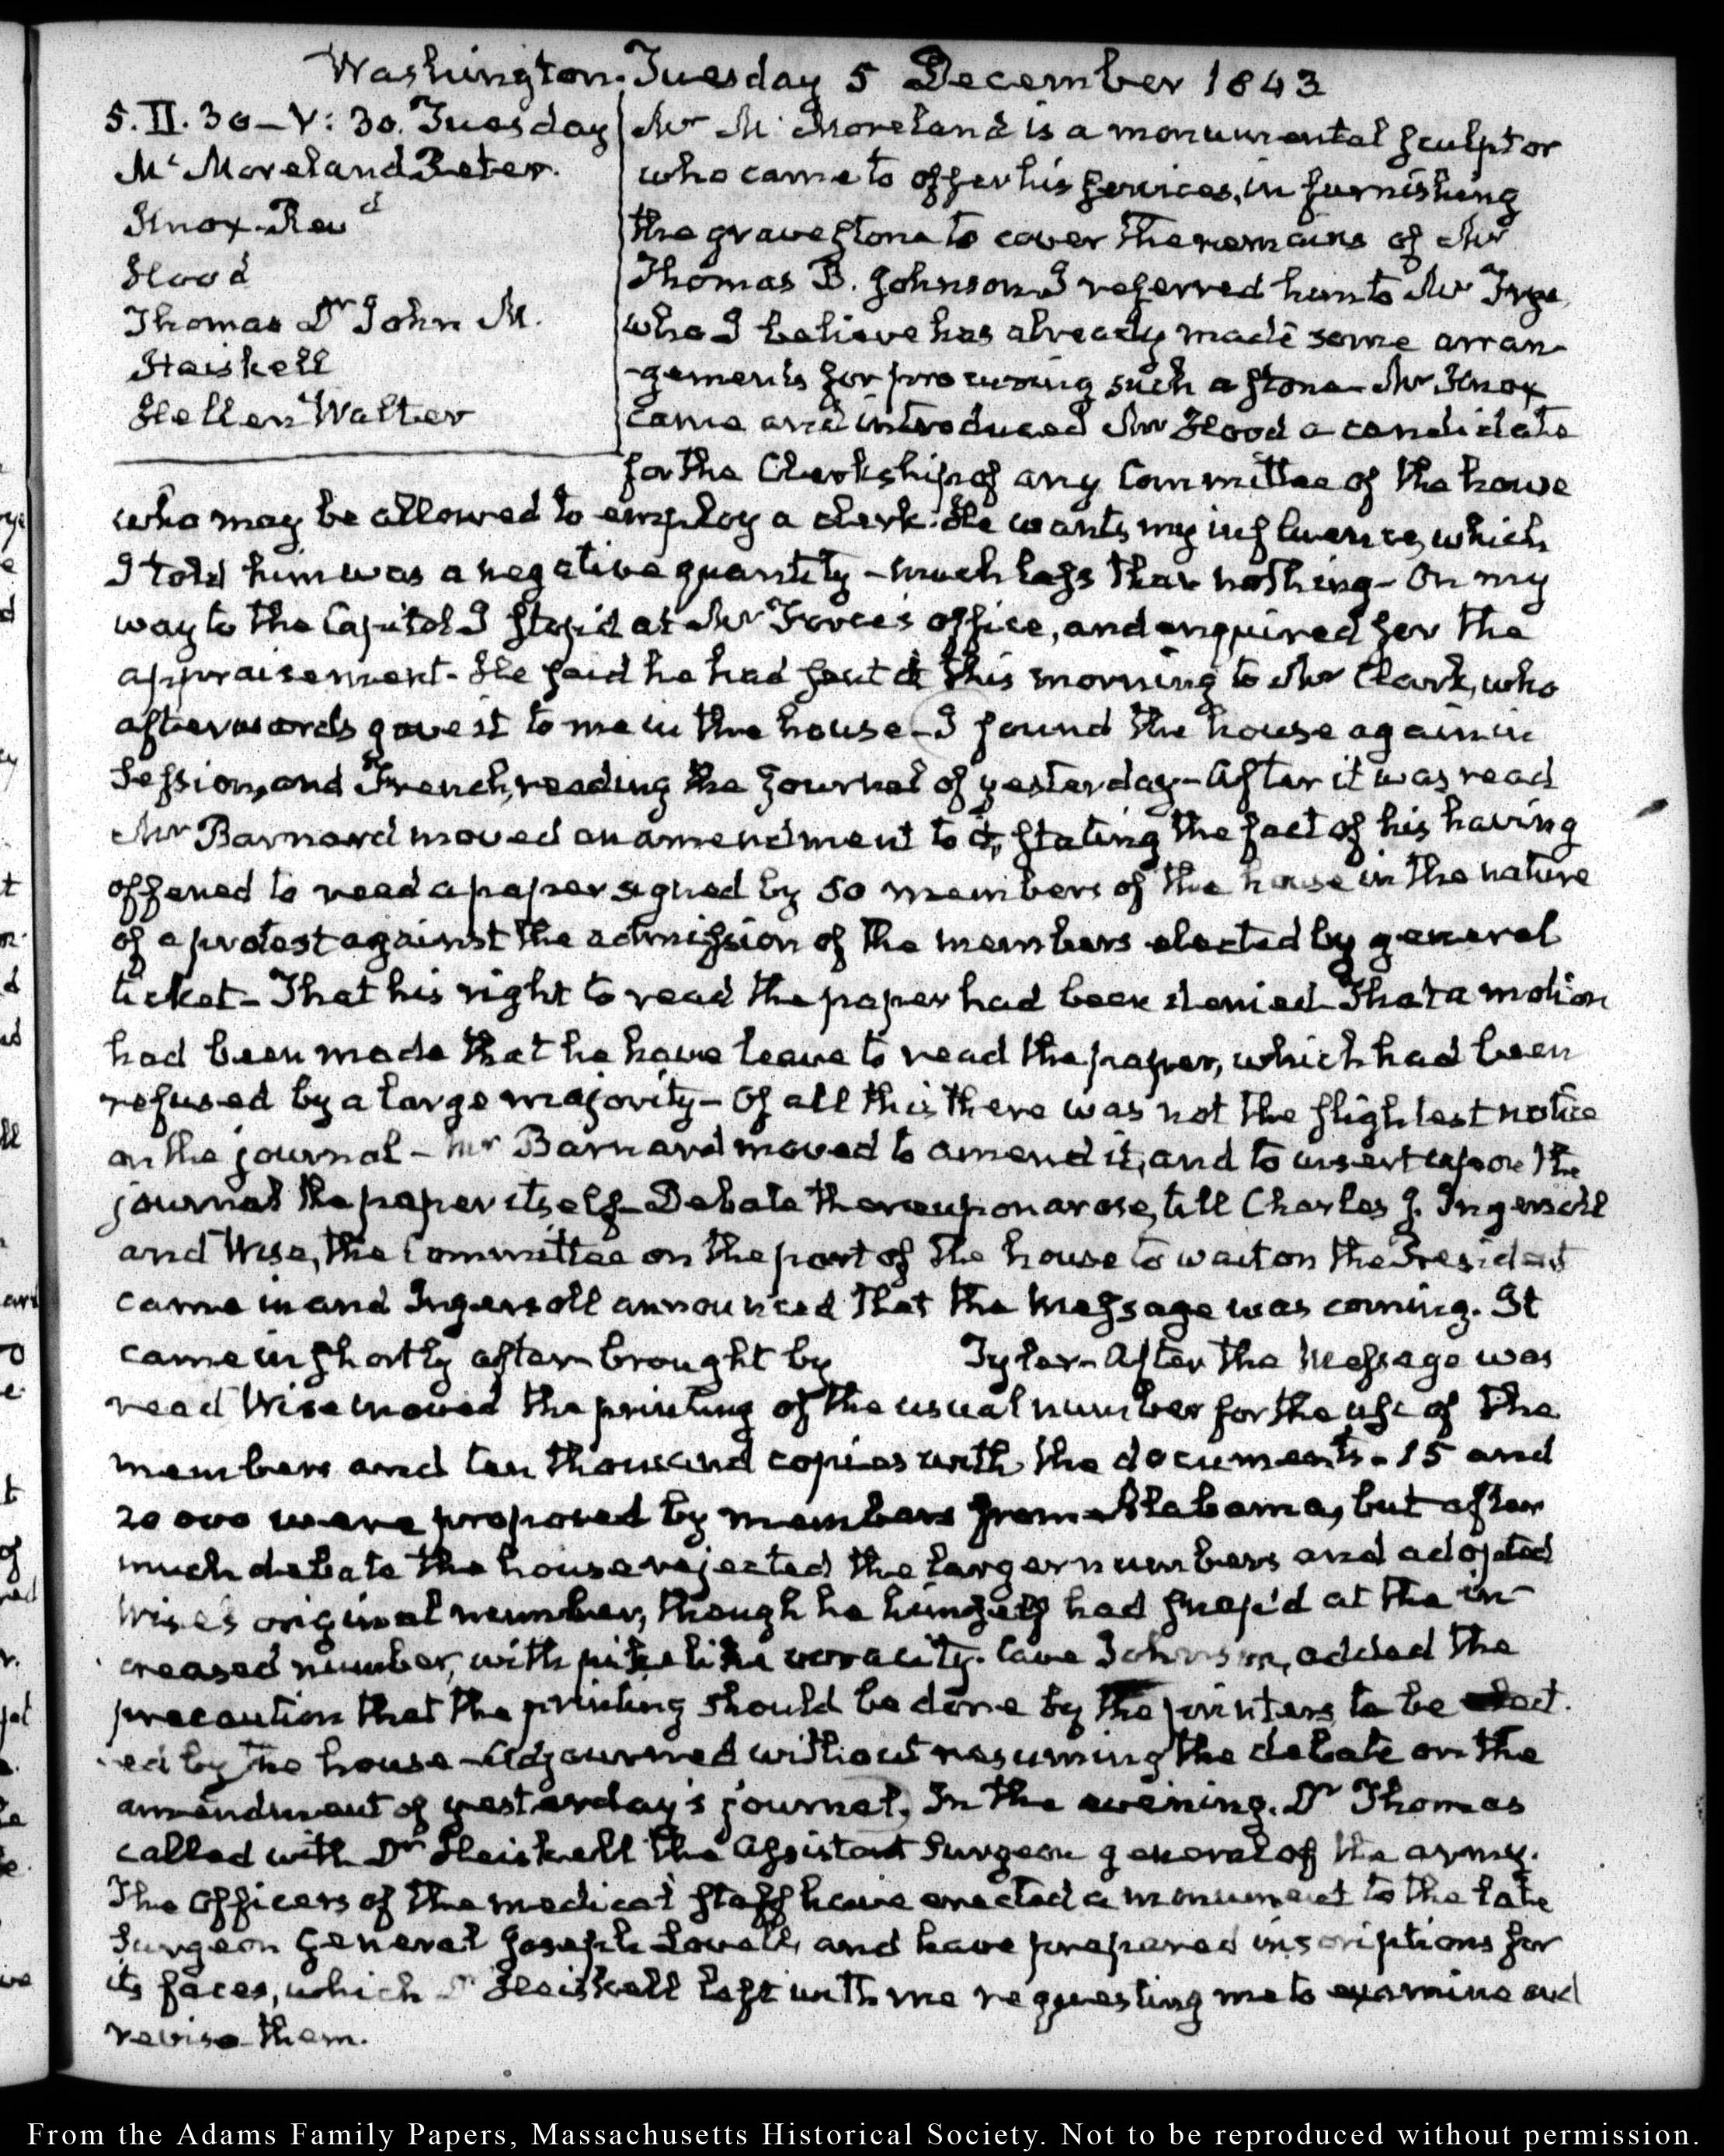 Washington. Tuesday 5 December 1843
5. II. 30 — V: 30. Tuesday
McMoreland Peter.
Knox. Revd
Hood
Thomas Dr John M.
Heiskell
Hellen Walter
Mr McMoreland is a monumental Sculptor
who came to offer his services, in furnishing
the gravestone to cover the remains of Mr
Thomas B. Johnson. I referred him to Mr Frye,
who I believe has already made some arran-
-gements for procuring such a stone - Mr Knox
came and introduced Mr Hood a candidate
for the Clerkship of any Committee of the house
who may be allowed to employ a clerk. He wants my influence, which
I told him was a negative quantity - much less than nothing - On my
way to the Capitol I stop'd at Mr Force's office, and enquired for the
appraisement - He said he had sent it this morning to Mr Clark, who
afterwards gave it to me in the house - I found the house again in
Session, and French, reading the journal of yesterday - After it was read
Mr Barnard moved an amendment to it, stating the fact of his having
offered to read a paper signed by 50 members of the house in the nature
of a protest against the admission of the members elected by general
ticket - That his right to read the paper had been denied - That a motion
had been made that he have leave to read the paper, which had been
refused by a large majority - Of all this there was not the slightest notice
on the journal - Mr Barnard moved to amend it, and to insert upon the
journal the paper itself - Debate thereupon arose, till Charles J. Ingersoll
and Wise, the Committee on the part of the house to wait on the President
came in and Ingersoll announced that the Message was coming. It
came in shortly after brought by Tyler - After the Message was
read Wise moved the printing of the usual number for the use of the
members and ten thousand copies with the documents - 15 and
20 000 were proposed by members from Alabama, but after
much debate the house rejected the larger numbers and adopted
Wise's original number, though he himself had snap'd at the in-
creased number, with pike like voracity. Cave Johnson, added the
precaution that the printing should be done by the printers to be elect.
-ed by the house - Adjourned without resuming the debate on the
amendment of yesterday's journal. In the evening. Dr Thomas
called with Dr Heiskell the Assistant Surgeon general of the army.
The Officers of the medical staff have erected a monument to the late
Surgeon General Joseph Lovell, and have prepared inscriptions for
its faces, which Dr Heiskell left with me requesting me to examine and
revise them.
From the Adams Family Papers, Massachusetts Historical Society. Not to be reproduced without permission.